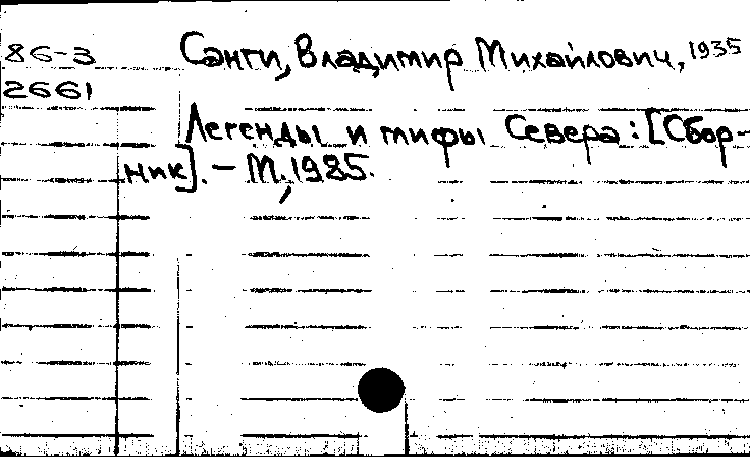 86-3 Санги, Владимир Михайлович, 1935
2661
Легенды и мифы Севера: [Сбор-
ник]. - М., 1985.